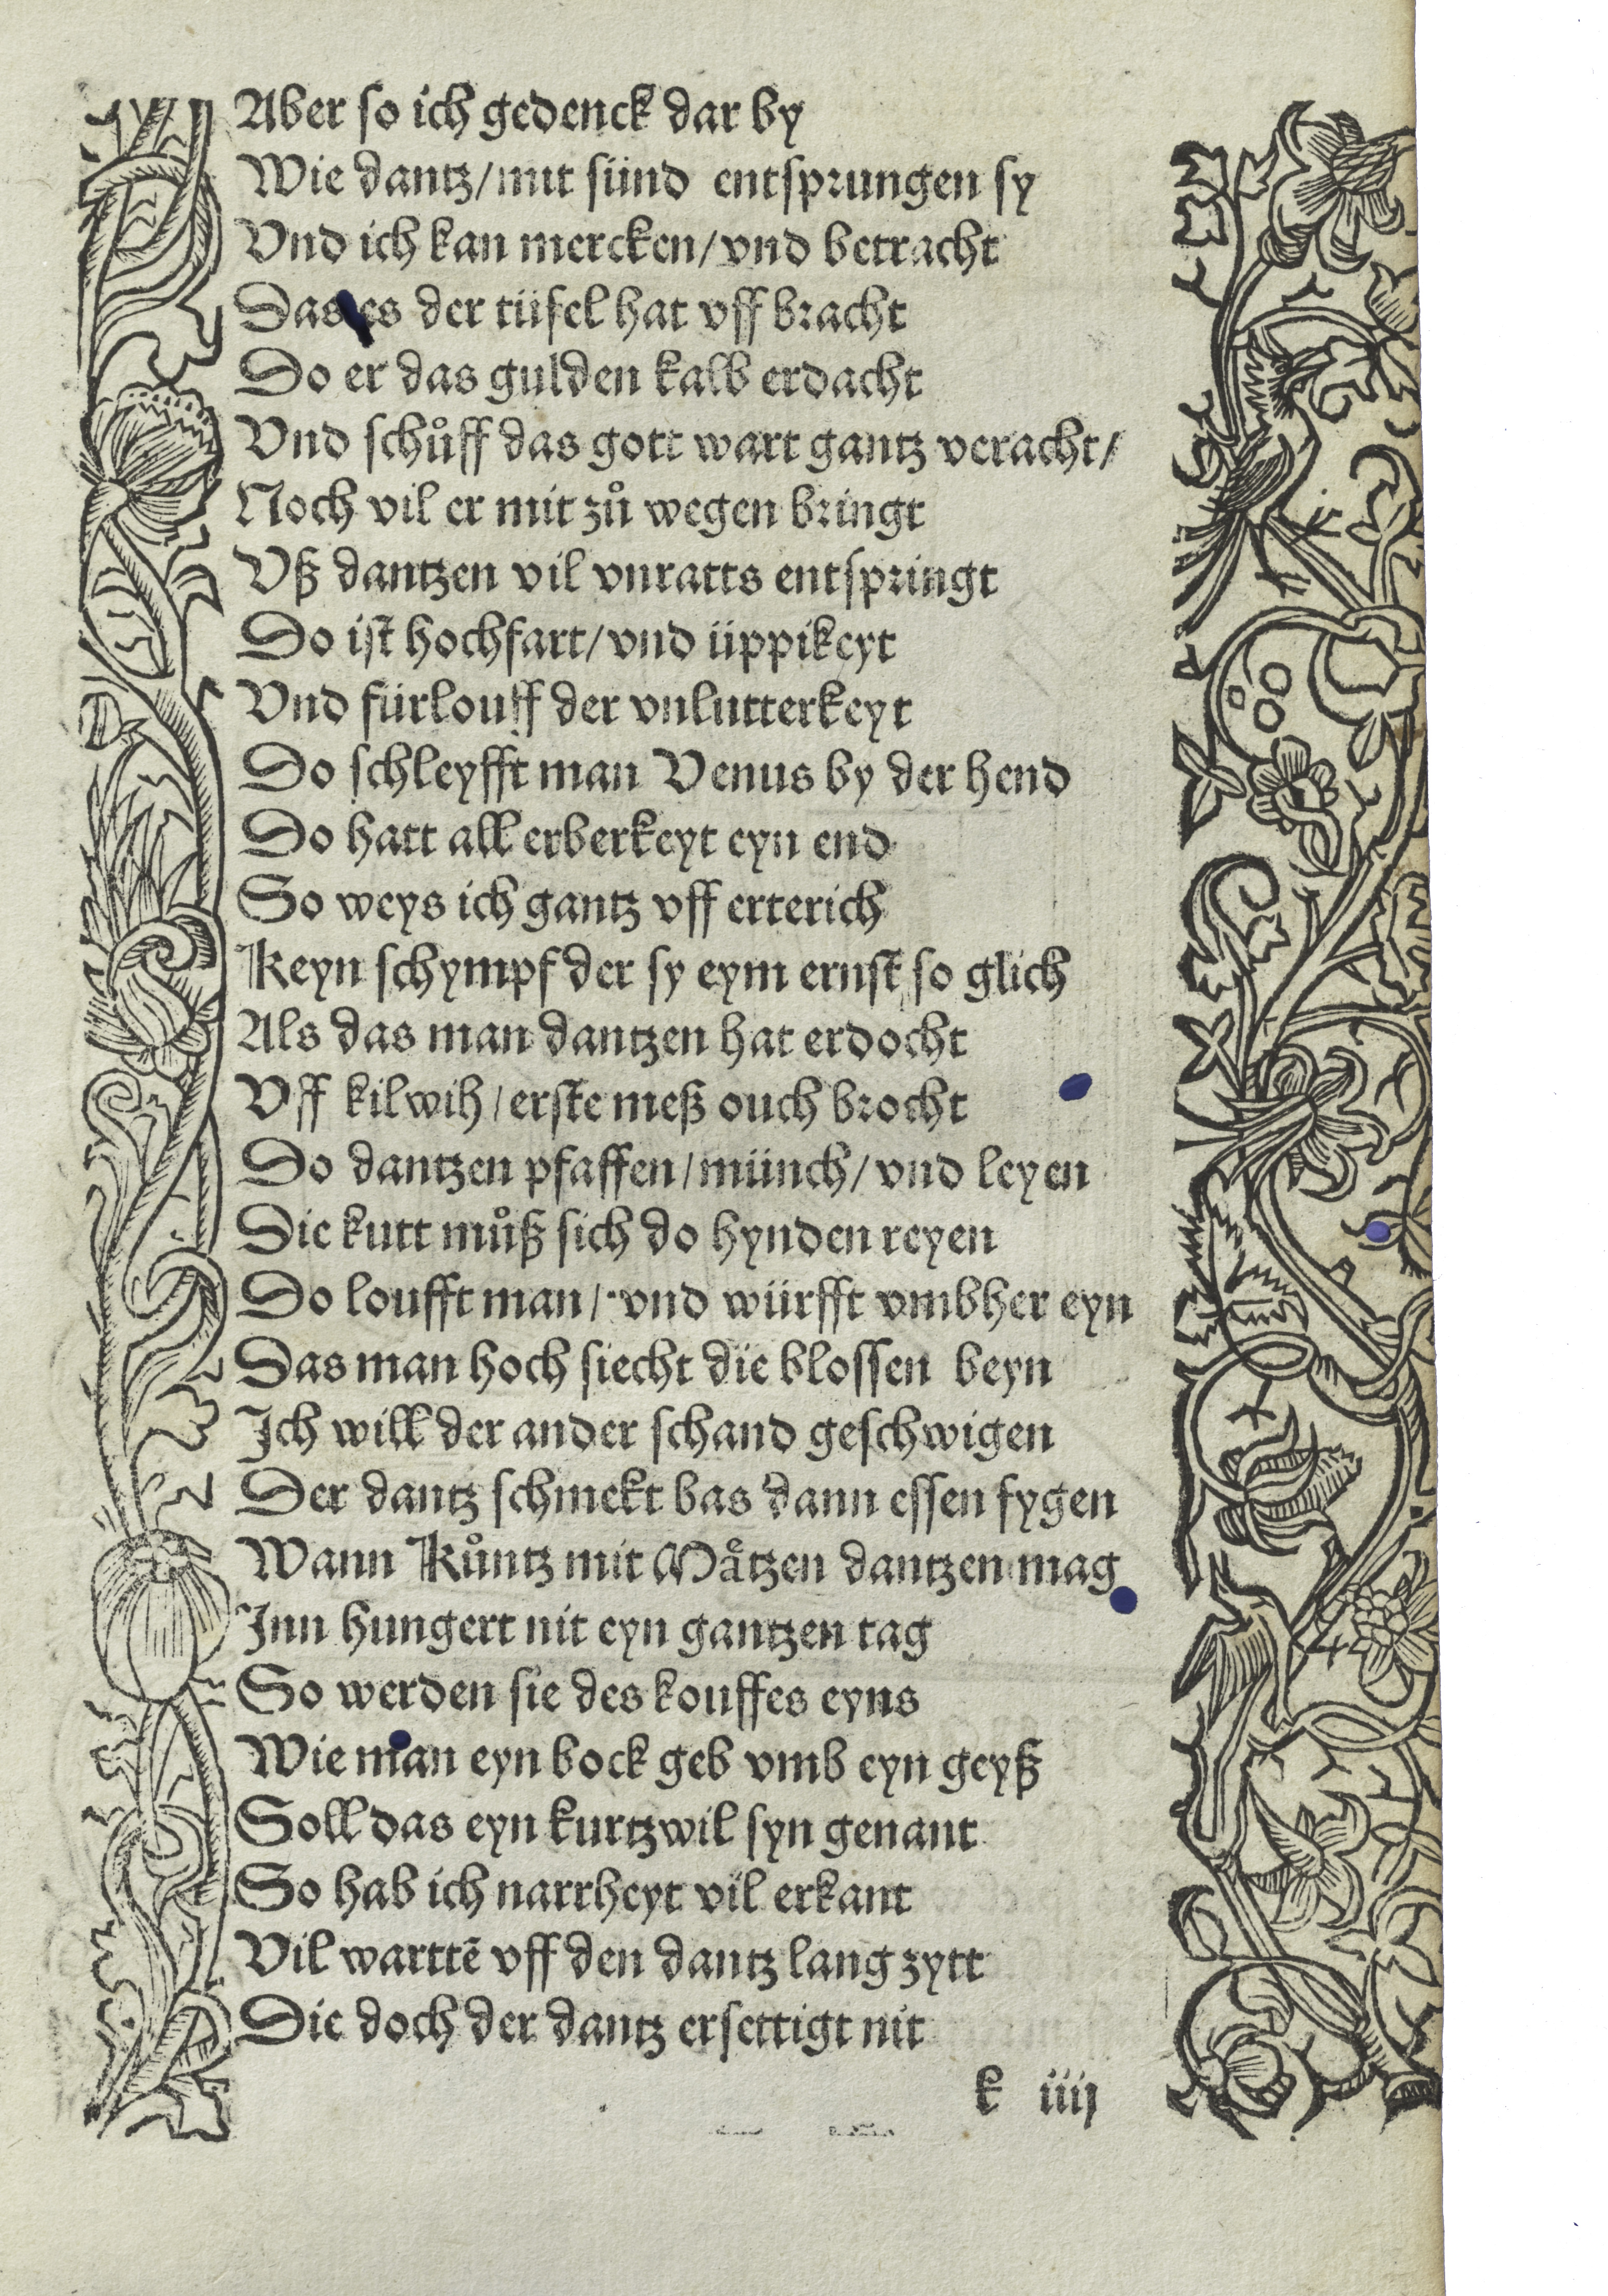 Aber so ich gedenck dar by
Wie dantz/mit sünd entsprungen sy
Vnd ich kan mercken/vnd betracht
Das es der tüfel hat vff bracht
Do er das gulden kalb erdacht
Vnd schůff das gott wart gantz veracht/
Noch vil er mit zů wegen bringt
Vß dantzen vil vnratts entspringt
Do ist hochfart/vnd üppikeyt
Vnd fürlouff der vnlutterkeyt
Do schleyfft man Venus by der hend
Do hatt all erberkeyt eyn end
So weys ich gantz vff erterich
Keyn schympf der sy eym ernst so glich
Als das man dantzen hat erdocht
Vff kilwih/erste meß ouch brocht
Do dantzen pfaffen/münch/vnd leyen
Die kutt můß sich do hynden reyen
Do loufft man/vnd würfft vmbher eyn
Das man hoch siecht die blossen beyn
Ich will der ander schand geschwigen
Der dantz schmekt bas dann essen fygen
Wann Kůntz mit Mätzen dantzen mag
Inn hungert nit eyn gantzen tag
So werden sie des kouffes eyns
Wie man eyn bock geb vmb eyn geyß
Soll das eyn kurtzwil syn genant
So hab ich narrheyt vil erkant
Vil warttē vff den dantz lang zytt
Die doch der dantz ersettigt nit
k iiij